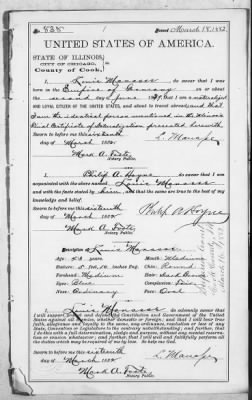 No. 838
Issued March 18, 1882
UNITED STATES OF AMERICA.
STATE OF ILLINOIS,
CITY OF CHICAGO,
County of Cook,
I, Louis Manasse, do swear that I was
born in the Empire of Germany on or about
the second day of June 1829, that I am a naturalized
AND LOYAL CITIZEN OF THE UNITED STATES, and about to travel abroad, and that
I am the identical person mentioned in the
Certificate of Naturalization presented herewith
Sworn to before me this sixteenth
day of March 1882
L. Manasse
Mark A. Foote
Notary Public.
I, Philip A. Hoyne, do swear that I am
acquainted with the above named Louis Manasse
and with the facts stated by him, and that they are true to the best of my
knowledge and belief.
Sworn to before me this sixteenth
day of March 1882
Philip A Hoyne
Mark A. Foote
Notary Public.
Description of Louis Manasse
Age: 53 years.
Mouth:
Stature: 5 feet, 10 inches Eng.
Chin: Round
Forehead: Medium
Hair:
Eyes: Blue
Complexion: Fair
Nose: Ordinary
Face: Oval
I, Louis Manasse, do solemnly swear that I
will support, protect and defend the Constitution and Government of the United
States against all enemies, whether domestic or foreign; and that I will bear true
faith, allegiance and loyalty to the same, any ordinance, resolution or law of any
State, Convention or Legislature to the contrary notwithstanding; and further, that I
do this with a full determination, pledge and purpose, without any mental reservation
or evasion whatsoever; and further, that I will well and faithfully perform all
the duties which may be required of me by law. So help me God.
Sworn to before me this sixteenth
day of March 1882
L. Manasse
Mark A. Foote
Notary Public.